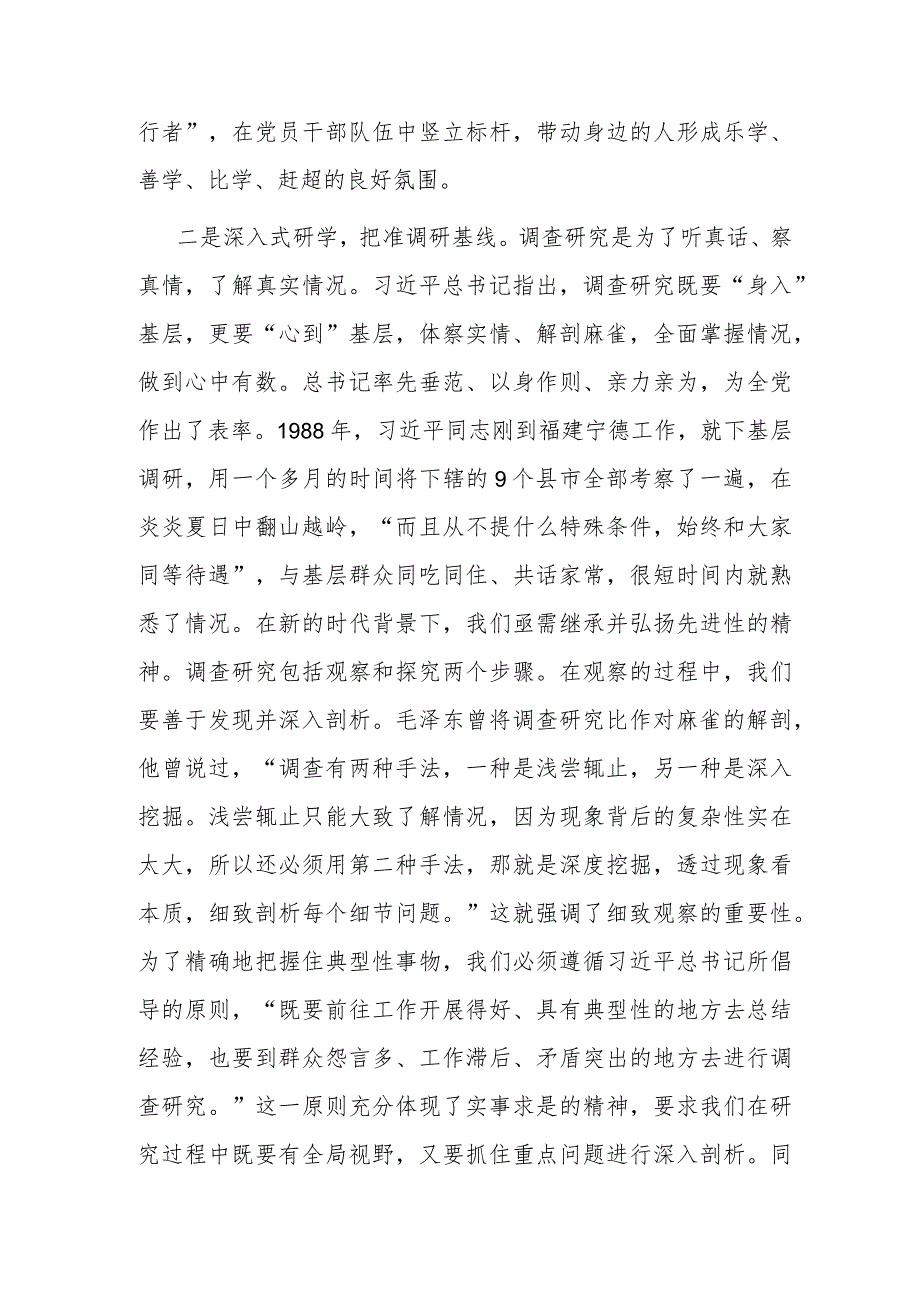 行者”，在党员干部队伍中竖立标杆，带动身边的人形成乐学、
善学、比学、赶超的良好氛围。
二是深入式研学，把准调研基线。调查研究是为了听真话、察
真情，了解真实情况。习近平总书记指出，调查研究既要“身入”
基层，更要“心到”基层，体察实情、解剖麻雀，全面掌握情况，
做到心中有数。总书记率先垂范、以身作则、亲力亲为，为全党
作出了表率。1988年，习近平同志刚到福建宁德工作，就下基层
调研，用一个多月的时间将下辖的9个县市全部考察了一遍，在
炎炎夏日中翻山越岭，“而且从不提什么特殊条件，始终和大家
同等待遇”，与基层群众同吃同住、共话家常，很短时间内就熟
悉了情况。在新的时代背景下，我们亟需继承并弘扬先进性的精
神。调查研究包括观察和探究两个步骤。在观察的过程中，我们
要善于发现并深入剖析。毛泽东曾将调查研究比作对麻雀的解剖，
他曾说过，“调查有两种手法，一种是浅尝辄止，另一种是深入
挖掘。浅尝辄止只能大致了解情况，因为现象背后的复杂性实在
太大，所以还必须用第二种手法，那就是深度挖掘，透过现象看
本质，细致剖析每个细节问题。”这就强调了细致观察的重要性。
为了精确地把握住典型性事物，我们必须遵循习近平总书记所倡
导的原则，“既要前往工作开展得好、具有典型性的地方去总结
经验，也要到群众怨言多、工作滞后、矛盾突出的地方去进行调
查研究。”这一原则充分体现了实事求是的精神，要求我们在研
究过程中既要有全局视野，又要抓住重点问题进行深入剖析。同